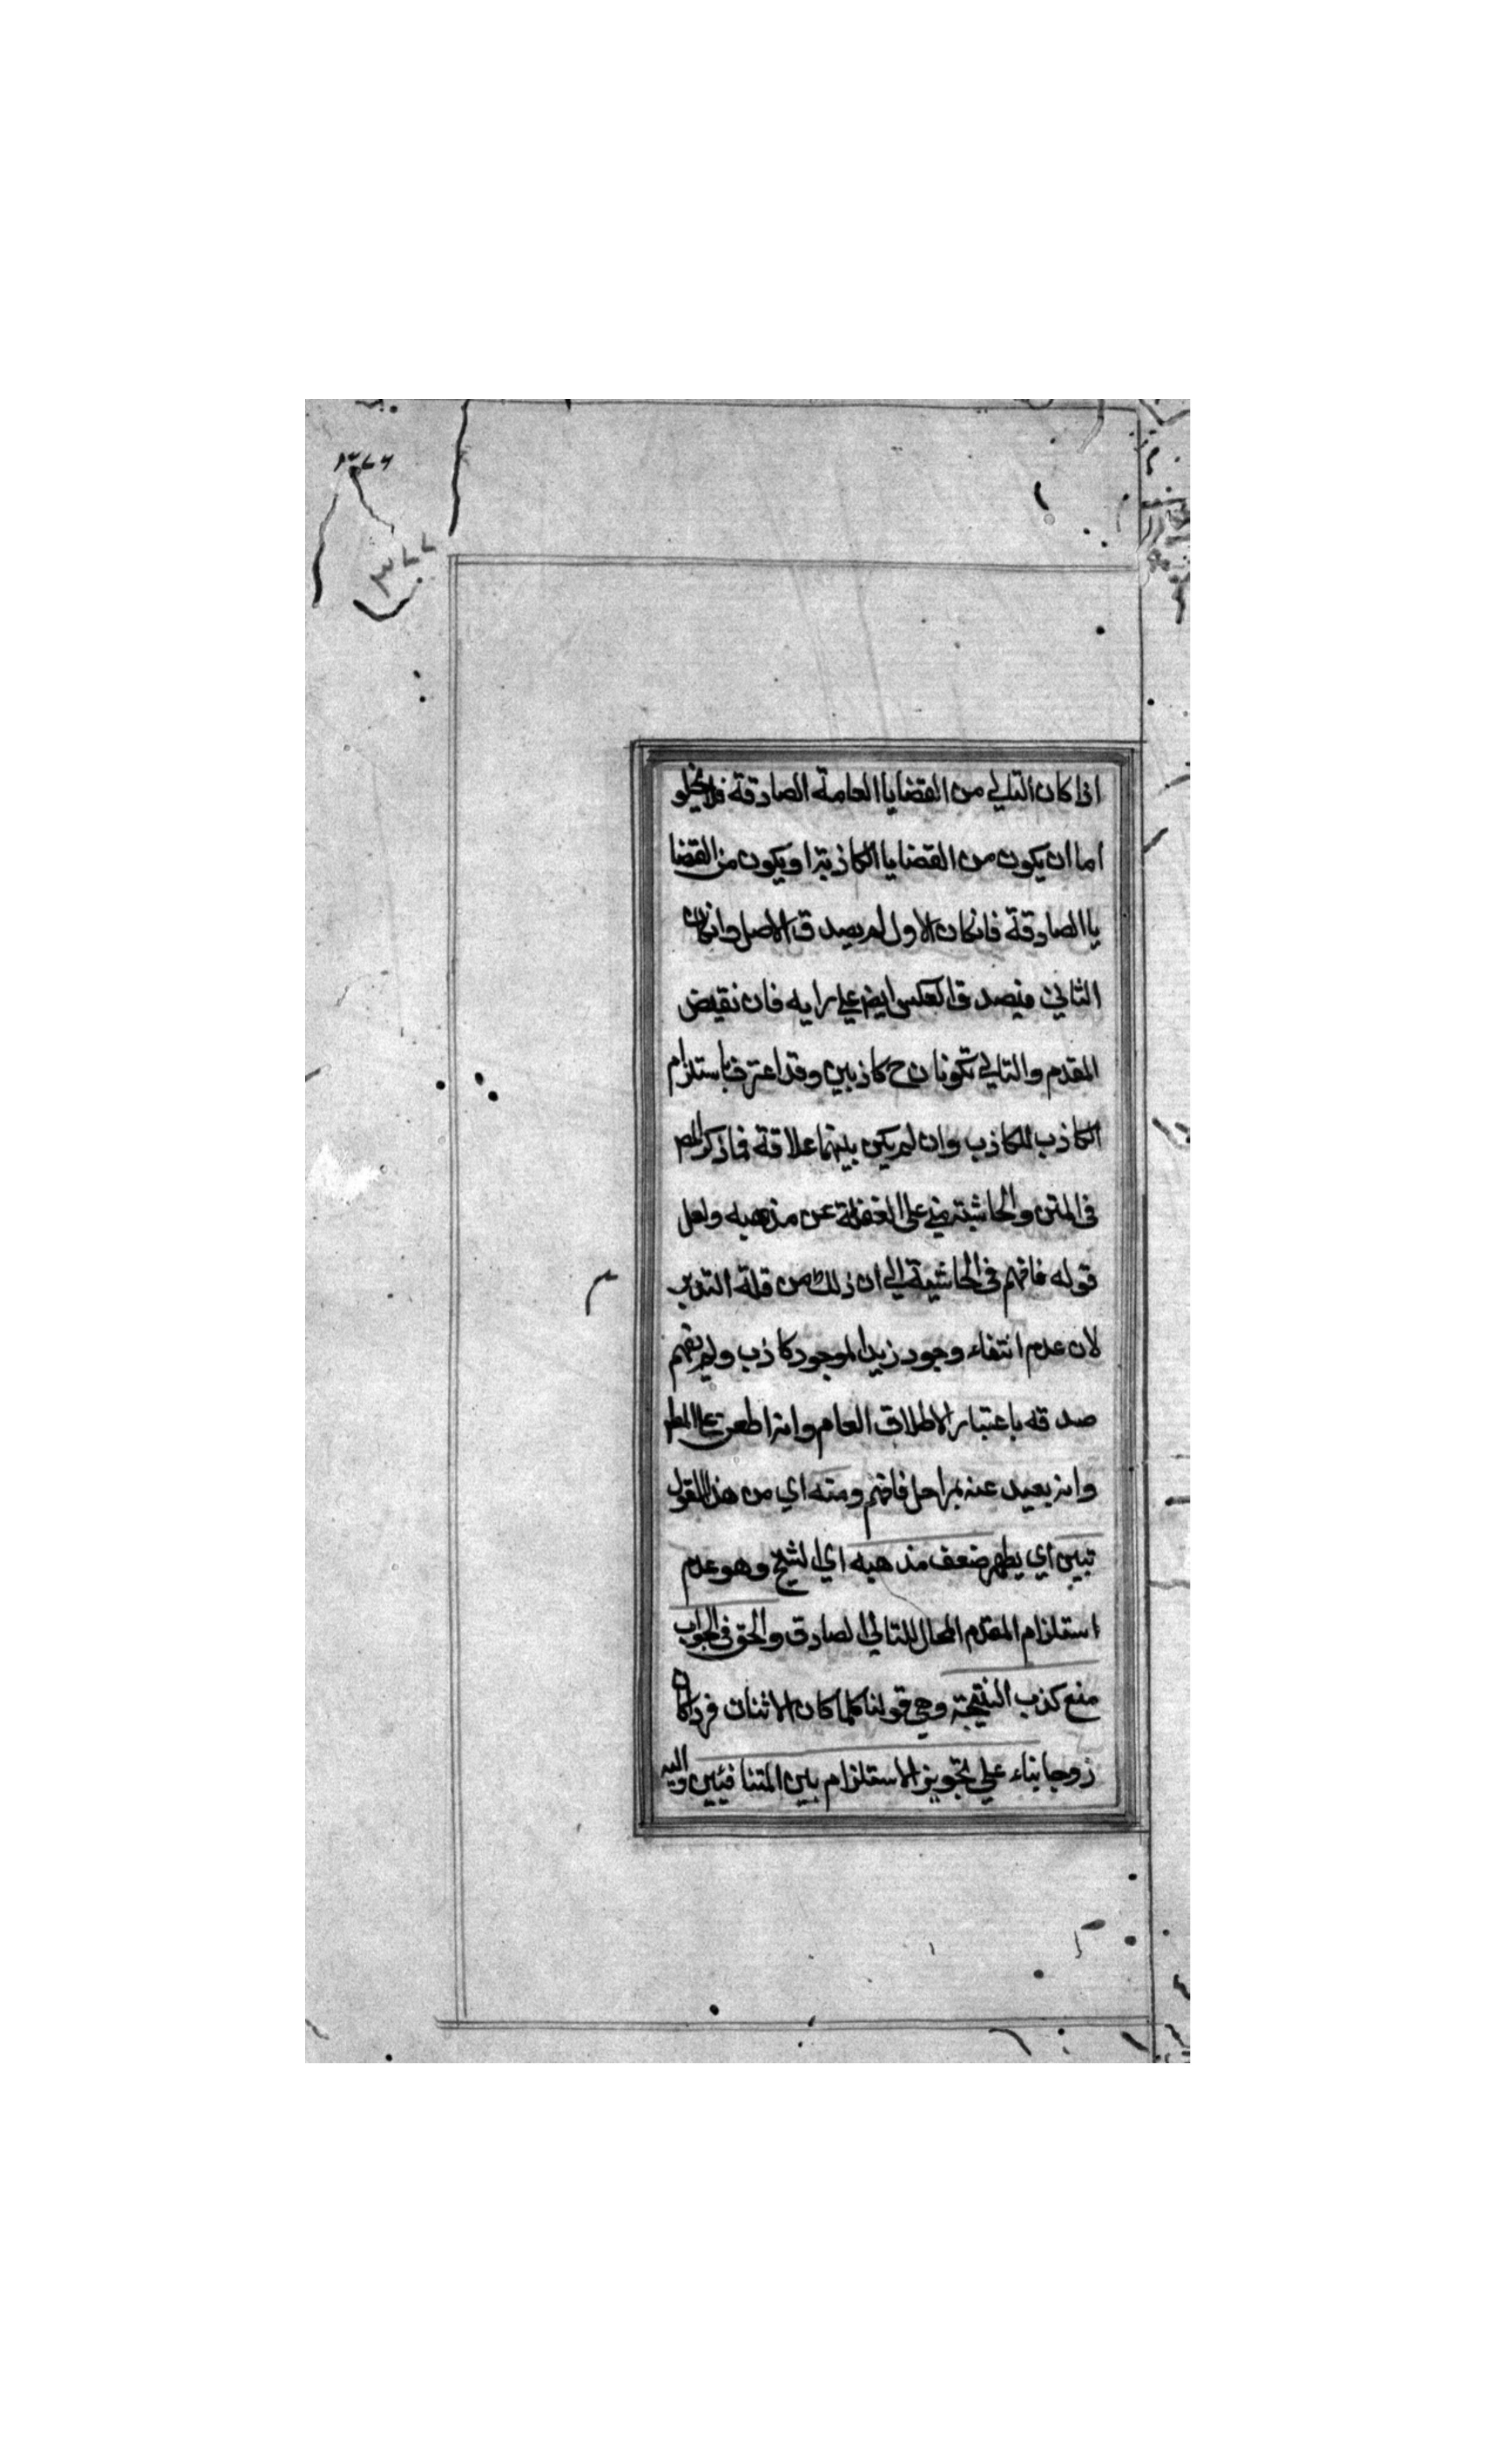 اذا كان التالي من القضايا العامة الصادقة فلا يخلو
اما ان يكون من القضايا الكاذبة او يكون من القضا
يا الصادقة فانكان الاول لم يصدق الاصل وانكان
الثاني فيصدق العكس ايض علي رايه فان نقيض
المقدم والتالي تكونان ح كاذبين وقد اعترف باستلزام
الكاذب للكاذب وان لم يكن بينهما علاقة فما ذكر المص
في المتن والحاشية مبني علي الغفلة عن مذهبه ولعل
قوله فافهم في الحاشية الي ان ذلك من قلة التدبر
لان عدم انتفاء وجود زيد الموجود كاذب ولم يفهم
صدقه باعتبار الاطلاق العام وانه اطعن علي المط
وانه بعيد عنه بمراحل فافهم ومنه اي من هذا القول
تبين اي يظهر ضعف مذهبه اي الشيخ وهو عدم
استلزام المقدم المحال للتالي الصادق والحق في الجواب
منع كذب النتيجة وهي قولنا كلما كان الاثنان فردا كان
زوجا بناء علي تجويز الاستلزام بين المتنافيين واليه